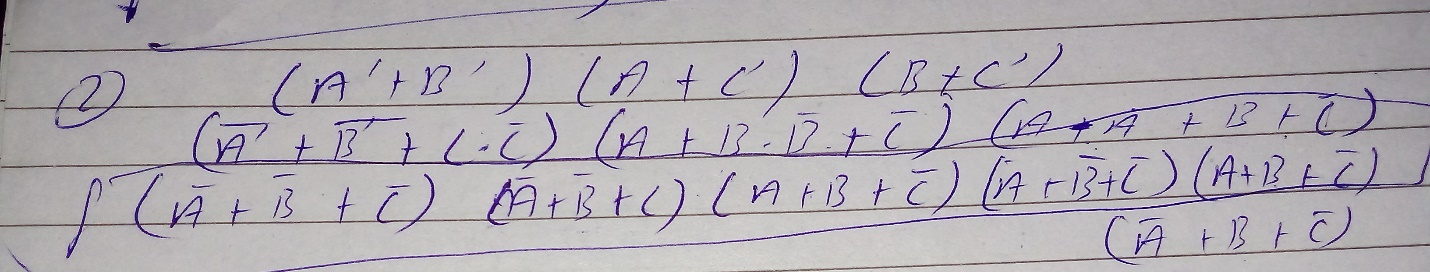 ② (A'+B') (A + C') (B+C')
(A̅' + B̅' + C·C̅) (A + B·B̅ + C̅) (A + A̅ + B + C̅)
(A̅ + B̅ + C̅) (A̅+B̅+C) (A+B+C̅) (A+B̅+C̅) (A+B+C̅)
(A̅ + B + C̅)